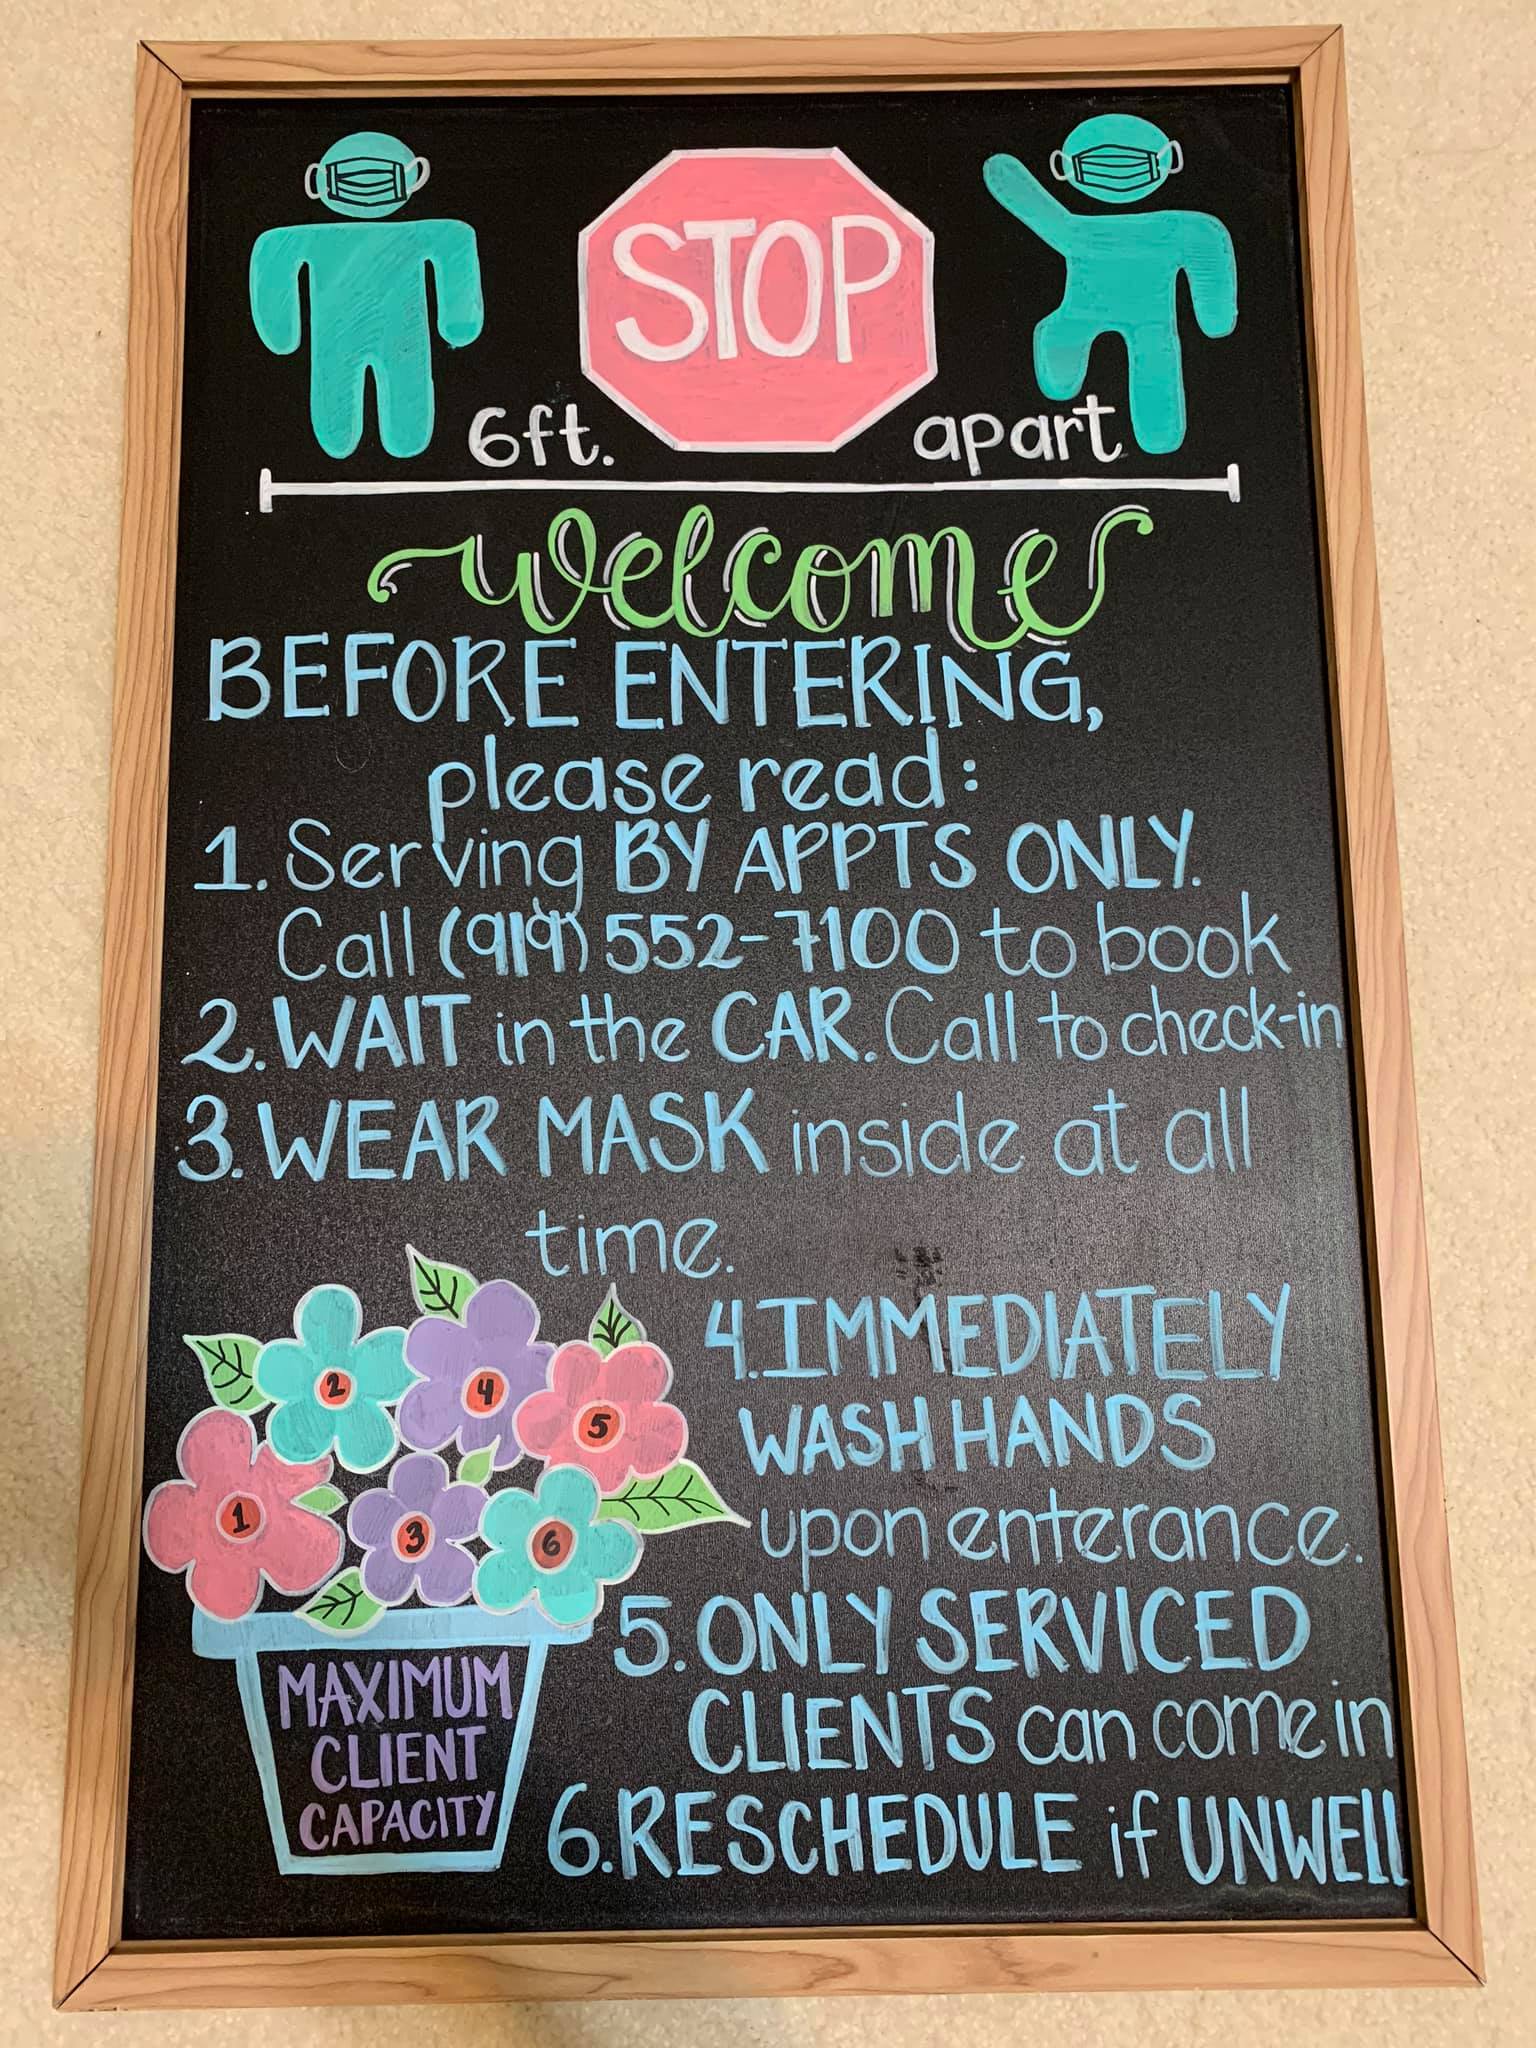 STOP
6ft. apart
welcome
BEFORE ENTERING,
please read:
1. Serving BY APPTS ONLY.
Call (919) 552-7100 to book
2. WAIT in the CAR. Call to check-in
3. WEAR MASK inside at all
time.
4. IMMEDIATELY
WASH HANDS
upon enterance.
5. ONLY SERVICED
CLIENTS can come in
6. RESCHEDULE if UNWELL
2
4
5
1
3
6
MAXIMUM
CLIENT
CAPACITY